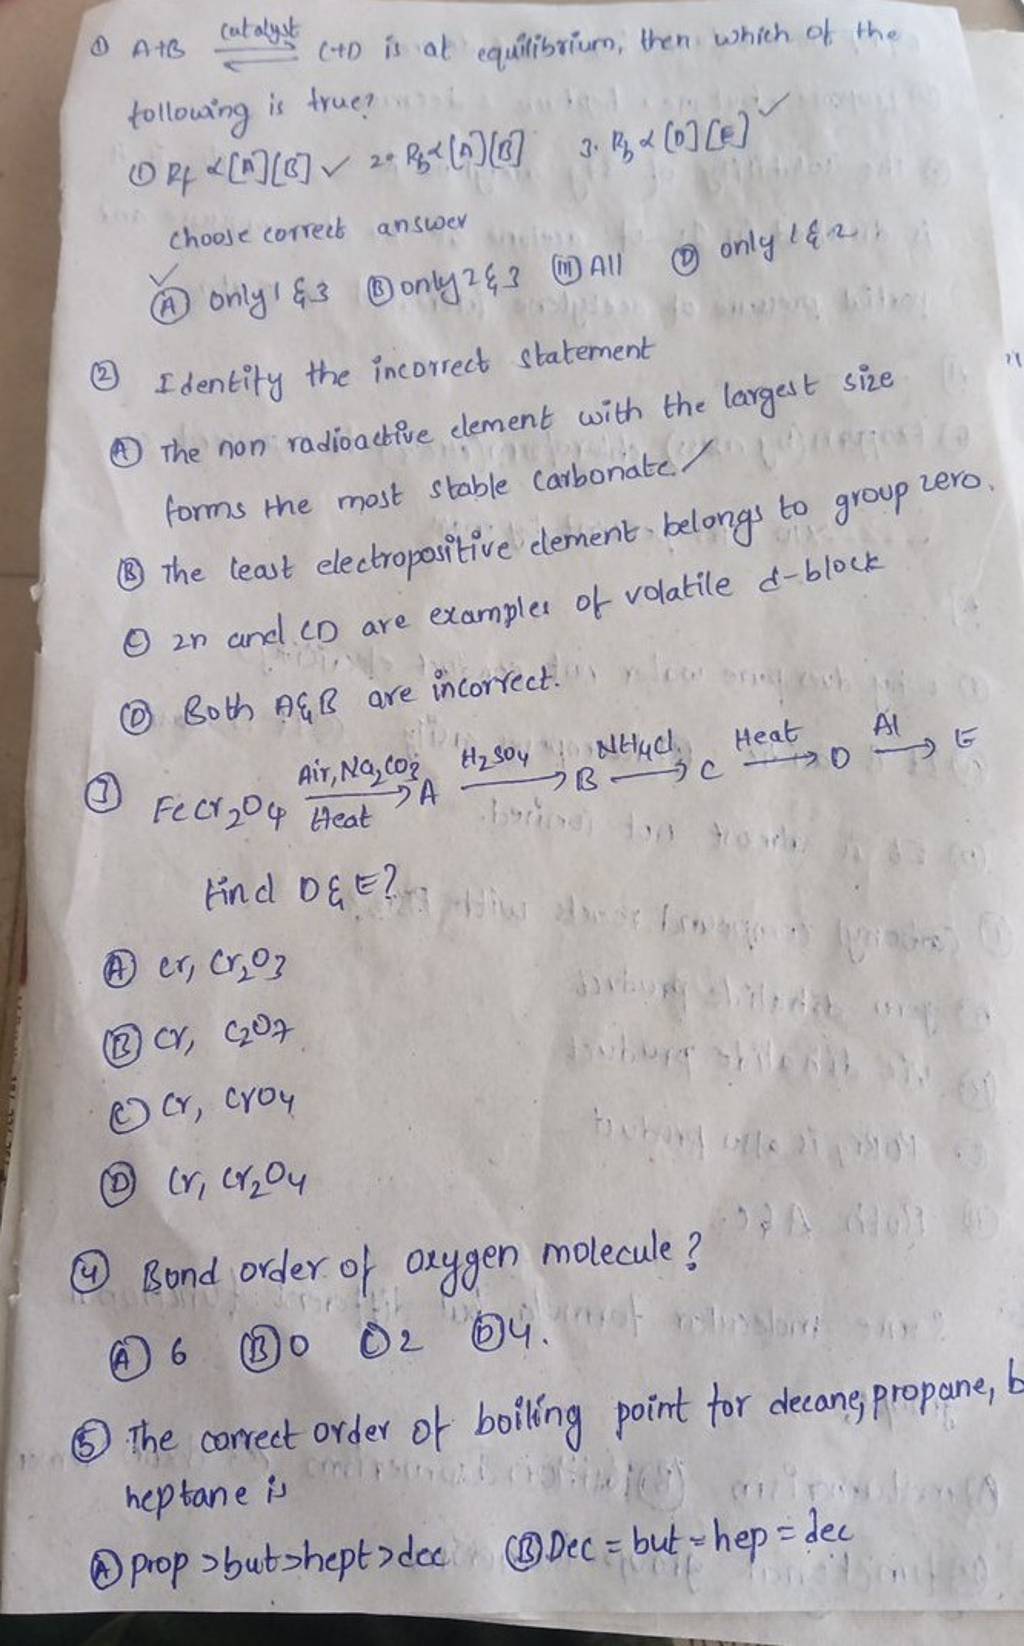 ① A+B catalyst ⇌ C+D is at equilibrium, then which of the
following is true?
① Rf ∝ [A][B] ✓ 2. Rb ∝ [A][B] 3. Rb ∝ [D][E] ✓
choose correct answer
✓
Ⓐ only 1 & 3 Ⓑ only 2 & 3 (III) All Ⓓ only 1 & 2
② Identify the incorrect statement
Ⓐ The non radioactive element with the largest size
forms the most stable carbonate. ✓
Ⓑ The least electropositive element belongs to group zero.
Ⓒ Zn and CD are examples of volatile d-block
Ⓓ Both A & B are incorrect.
③ FeCr₂O₄ Air, Na₂CO₃ Heat → A H₂SO₄ → B NH₄Cl → C Heat → D Al → E
Find D & E?
Ⓐ Cr, Cr₂O₃
Ⓑ Cr, C₂O₇
Ⓒ Cr, CrO₄
Ⓓ Cr, Cr₂O₄
④ Bond order of oxygen molecule?
Ⓐ 6 Ⓑ 0 Ⓒ 2 Ⓓ 4.
⑤ The correct order of boiling point for decane, propane, b
heptane is
Ⓐ prop > but > hept > dec Ⓑ Dec = but = hep = dec